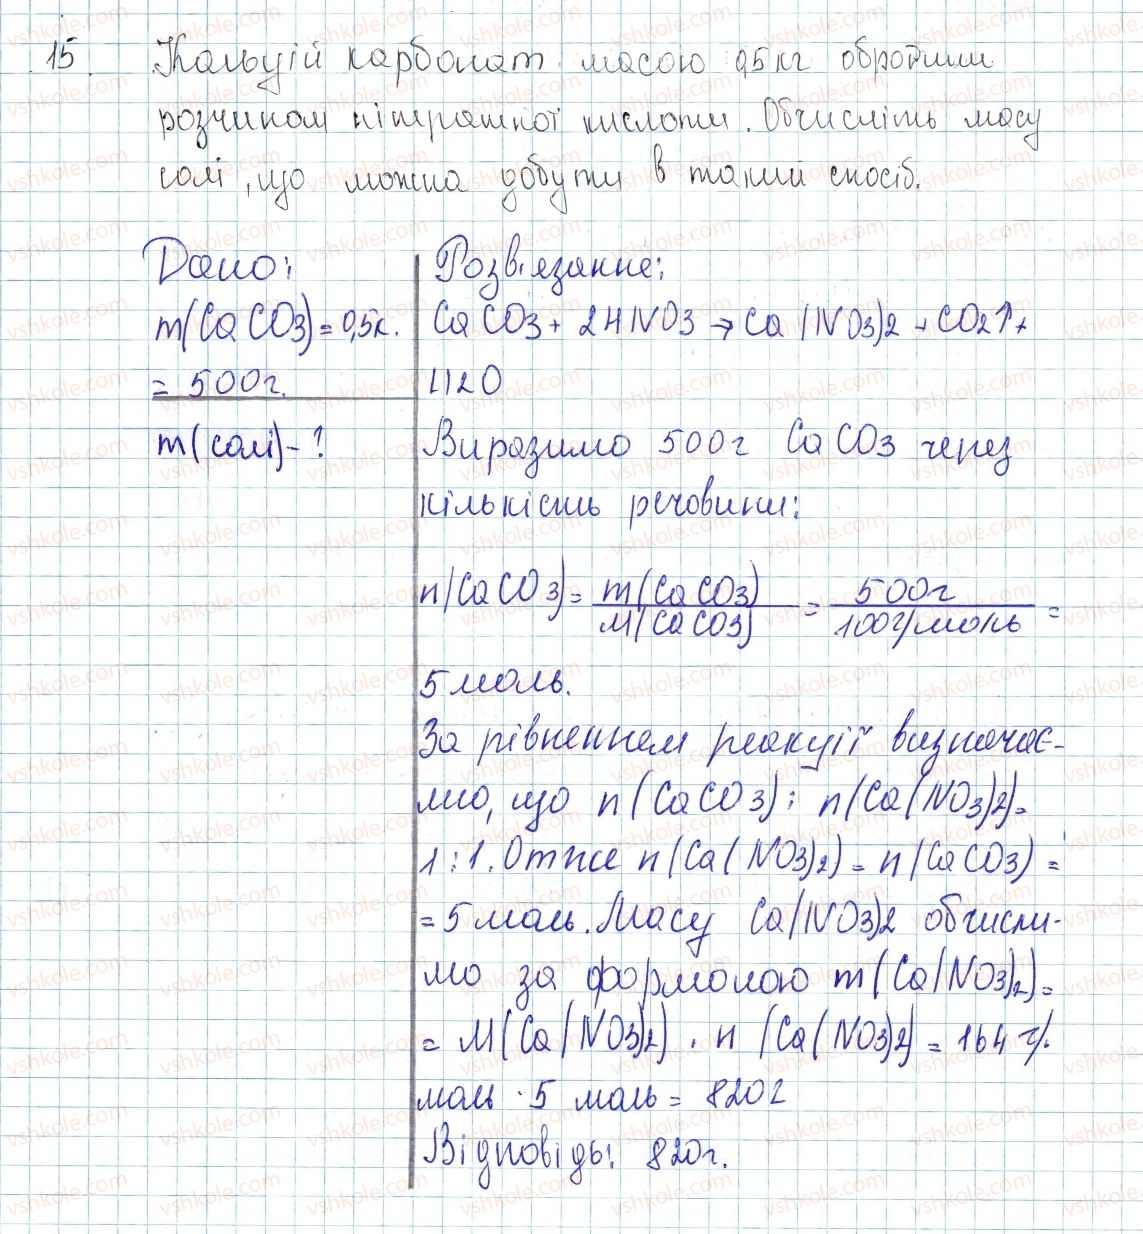 15. Кальцій карбонат масою 0,5 кг обробили
розчином нітратної кислоти. Обчисліть масу
солі, що можна добути в такий спосіб.
Дано:
m(CaCO3) = 0,5к.
= 500г.
m(солі) - ?
Розв'язання:
CaCO3 + 2HNO3 → Ca(NO3)2 + CO2↑ +
H2O
Виразимо 500г CaCO3 через
кількість речовини:
n(CaCO3) = m(CaCO3) / M(CaCO3) = 500г / 100г/моль =
5 моль.
За рівнянням реакції визначає-
мо, що n(CaCO3) : n(Ca(NO3)2) =
1 : 1. Отже n(Ca(NO3)2) = n(CaCO3) =
= 5 моль. Масу Ca(NO3)2 обчисли-
мо за формолою m(Ca(NO3)2) =
= M(Ca(NO3)2) · n(Ca(NO3)2) = 164 г/
моль · 5 моль = 820г
Відповідь: 820г.
vshkole.com